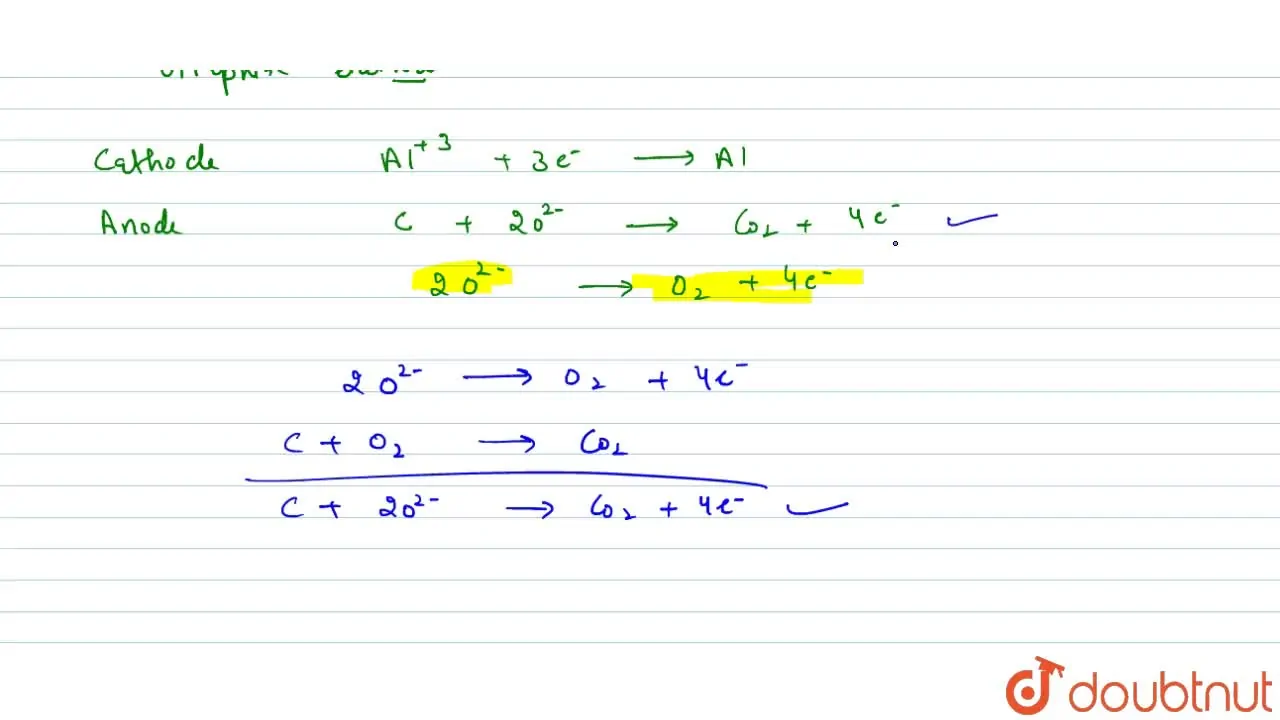 Cathode Al⁺³ + 3e⁻ → Al
Anode C + 2O²⁻ → CO₂ + 4e⁻
2O²⁻ → O₂ + 4e⁻
2O²⁻ → O₂ + 4e⁻
C + O₂ → CO₂
C + 2O²⁻ → CO₂ + 4e⁻
doubtnut